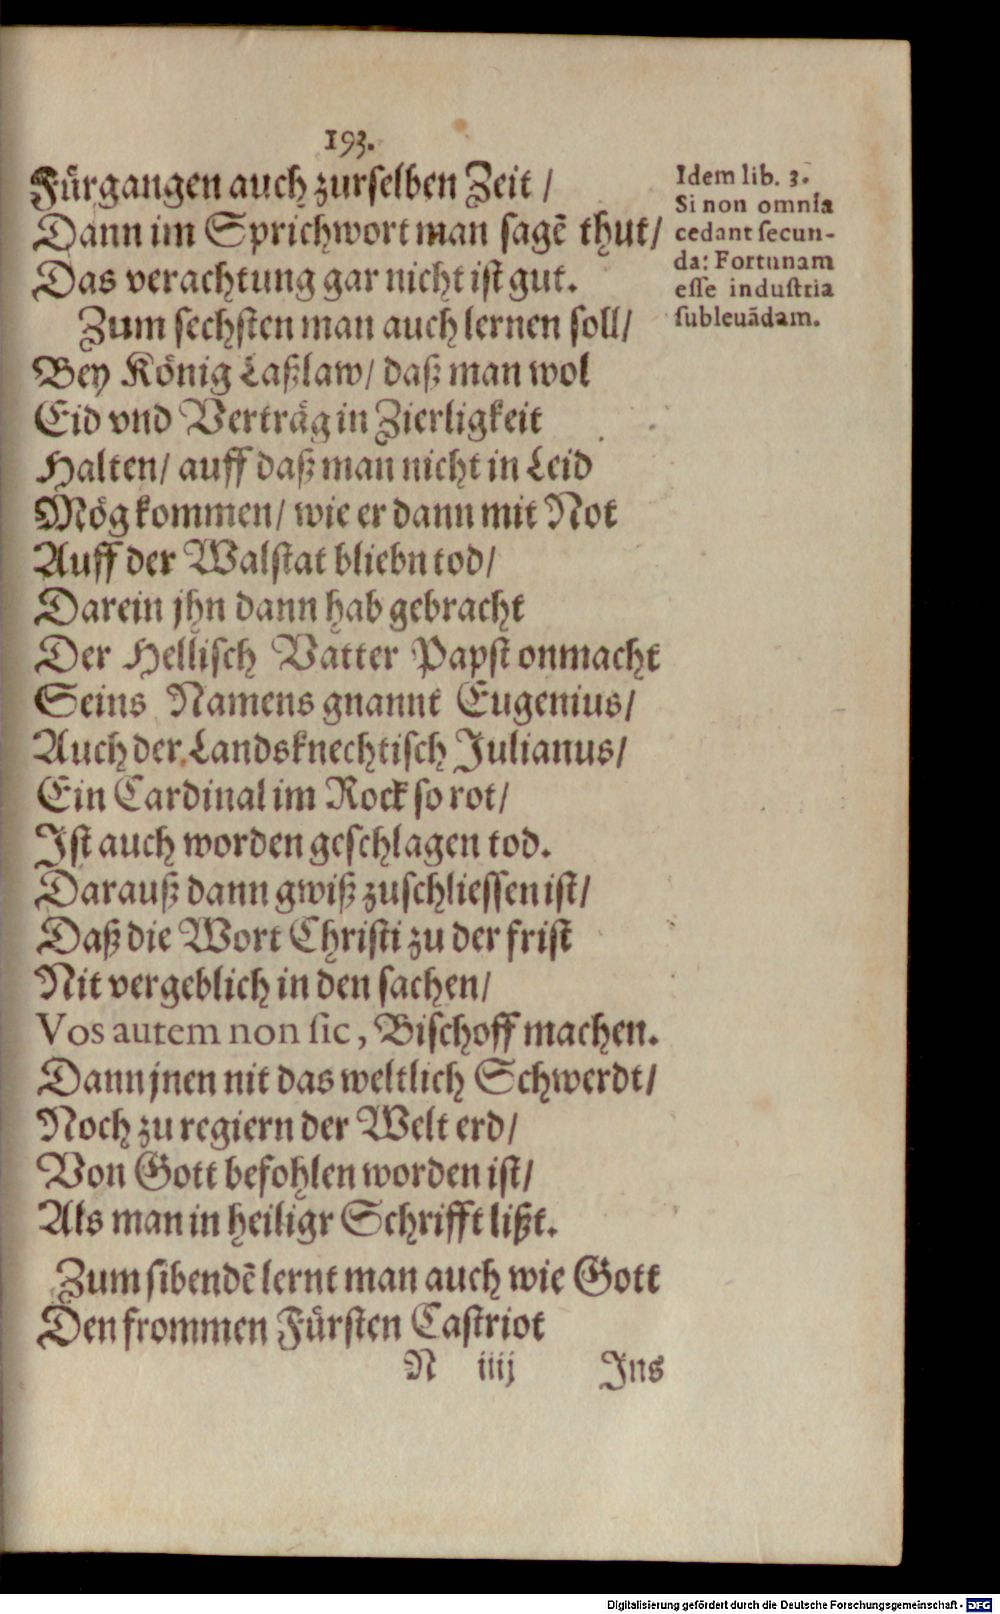 193.
Fürgangen auch zurselben Zeit /
Dann im Sprichwort man sagē thut/
Das verachtung gar nicht ist gut.
Zum sechsten man auch lernen soll/
Bey König Laßlaw/ daß man wol
Eid vnd Verträg in Zierligkeit
Halten/ auff daß man nicht in Leid
Mög kommen/ wie er dann mit Not
Auff der Walstat bliebn tod/
Darein jhn dann hab gebracht
Der Hellisch Vatter Papst onmacht
Seins Namens gnannt Eugenius/
Auch der Landsknechtisch Julianus/
Ein Cardinal im Rock so rot/
Ist auch worden geschlagen tod.
Darauß dann gwiß zuschliessen ist/
Daß die Wort Christi zu der frist
Nit vergeblich in den sachen/
Vos autem non sic, Bischoff machen.
Dann jnen nit das weltlich Schwerdt/
Noch zu regiern der Welt erd/
Von Gott befohlen worden ist/
Als man in heiligr Schrifft lißt.
Zum sibendē lernt man auch wie Gott
Den frommen Fürsten Castriot
N iiij Ins
Idem lib. 3.
Si non omnia
cedant secun-
da: Fortunam
esse industria
subleuādam.
Digitalisierung gefördert durch die Deutsche Forschungsgemeinschaft - DFG